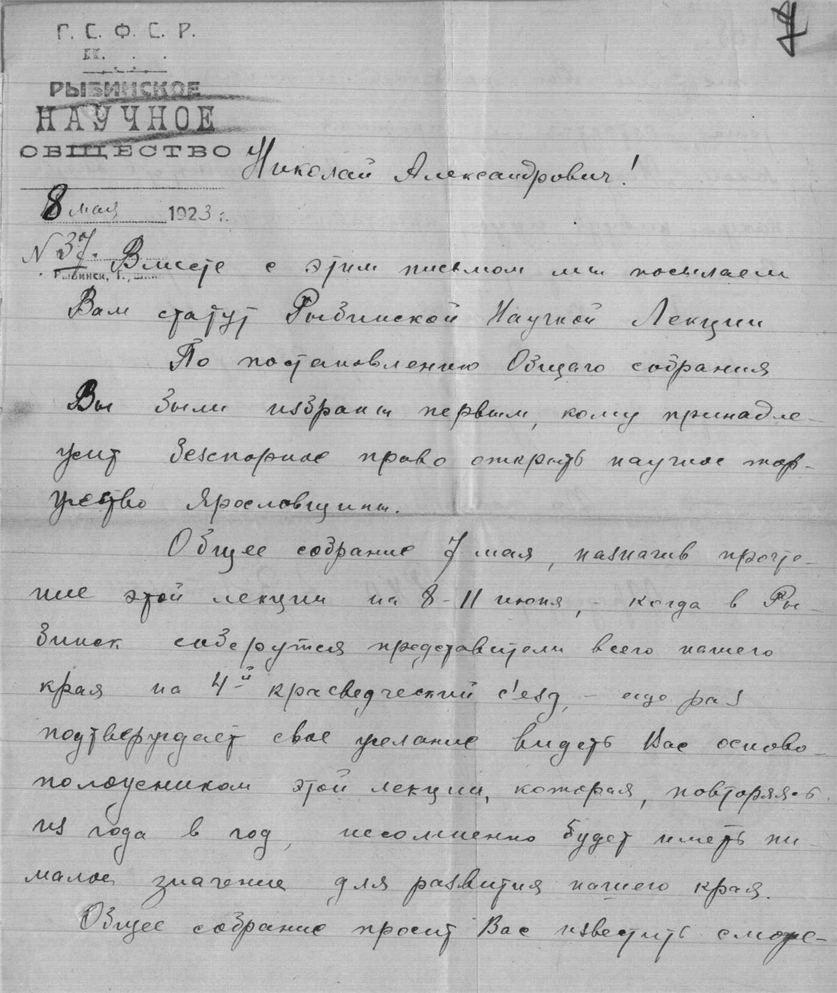 Г. С. Ф. С. Р.
РЫБИНСКОЕ
НАУЧНОЕ
ОБЩЕСТВО
Николай Александрович!
8 мая 1923 г.
N 37.
Рыбинск, Г.,
Вместе с этим письмом мы посылаем
Вам статут Рыбинской Научной Лекции
По постановлению Общаго собрания
Вы были избраны первым, кому принадле-
жит безспорное право открыть научное тор-
жество Ярославщины.
Общее собрание 7 мая, назначив прочте-
ние этой лекции на 8-11 июня, - когда в Ры-
бинск соберутся представители всего нашего
края на 4-й краеведческий с'езд, - еще раз
подтверждает свое желание видеть Вас осново-
положником этой лекции, которая, повторяясь
из года в год, несомненно будет иметь не-
малое значение для развития нашего края.
Общее собрание просит Вас известить